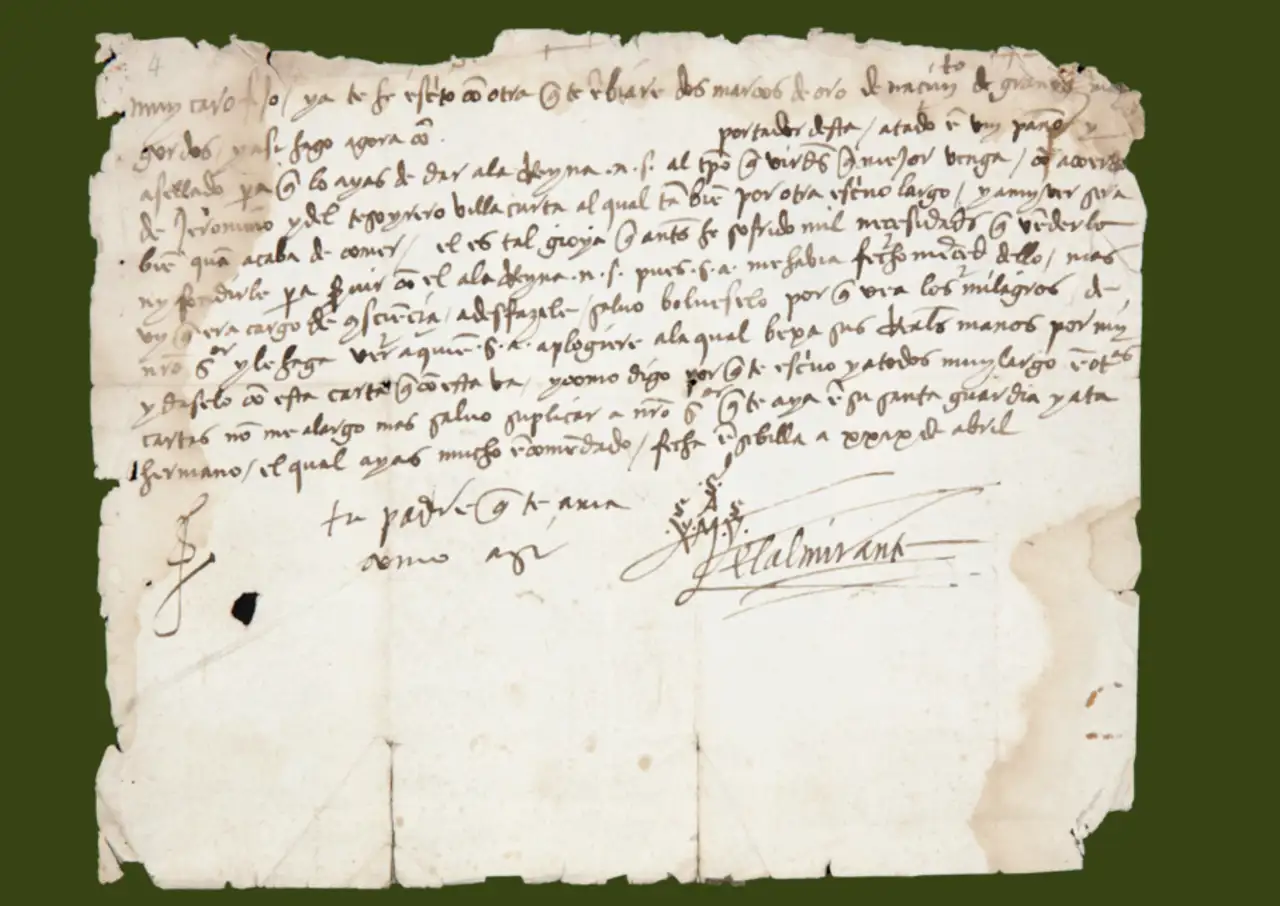 4
muy caro fijo / ya te he escrito cō otra q̄ te ēbiare dos marcos de oro de nacimiento de granos muy
gordos, y asi hago agora cō portador desta / atado ē vn paño y
asellado pa q̄ lo ayas de dar a la Reyna .n.s. al tpō q̄ virdes q̄ mejor venga / cō acuerdo
de Jerónimo y del tesoyrero villacurta al qual tābiē por otra escriuo largo / y a my ver sera
biē quā acaba de comer / el es tal gioya q̄ antes he sofrido mil necesidades q̄ vēderle
ny fondirle pa seruir cō el a la Reyna .n.s. pues .s.a. me habia fecho merced dello / mas
vy q̄ era cargo de consciēcia / a desfazale / saluo boluerselo por q̄ vea los milagros de
nrō sor y le haga ver a quiē .s.a. aplogiere a la qual bexa sus Reales manos por my
y daselo cō esta carta q̄ cō esta va / y como digo por q̄ te escriuo y a todos muy largo ē otras
cartas nō me alargo mas saluo suplicar a nrō sor q̄ te aya ē su santa guardia y a ta
hermano / el qual ayas mucho ēcomēdado / fecha ē sibilla a xxix de abril
tu padre q̄ te ama
como asi
.S.
.S.A.S.
X M Y
El almirante